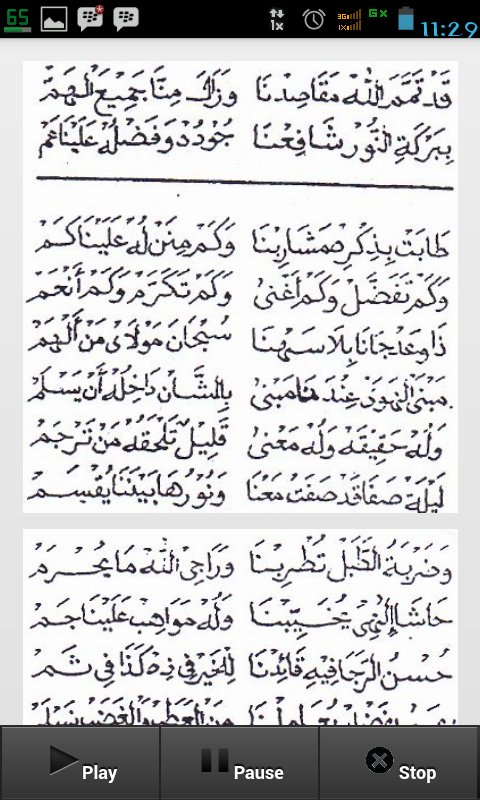 65 1x 3G 1X Gx 11:29
قَدْ تَمَّمَ اللهُ مَقَاصِدْنَا وَزَالَ مِنَّا جَمِيعَ الْهَمّْ
بِبَرْكَةِ النُّورْ شَافِعْنَا جُودُهْ وَفَضْلُهْ عَلَيْنَا عَمّْ
طَابَتْ بِذِكْرِهْ مَشَارِبْنَا وَكَمْ مِنَنْ لُهْ عَلَيْنَا كَمْ
وَكَمْ تَفَضَّلْ وَكَمْ أَغْنَى وَكَمْ تَكَرَّمْ وَكَمْ أَنْعَمْ
ذَا وَعْد جَانَا بِلَا سَهْنَا سُبْحَانَ مَوْلَاىَ مَنْ أَلْهَمْ
مَبْنَى الْهَوَدْ عِنْدَنَا مَبْنَى بِالشَّانْ دَاخِلُهْ أَنْ يَسْلَمْ
وَلُهْ حَقِيقَهْ وَلُهْ مَعْنَى قَلِيلْ تَلْحَقُهْ مَنْ تَرْجَمْ
لَيْلَةْ صَفَا قَدْ صَفَتْ مَعْنَا وَنُورُهَا بَيْنَنَا يُقْسَمْ
وَضَرْبَةُ الطَّبْلْ تُطْرِبْنَا وَرَاجِىَ اللهْ مَا يُحْرَمْ
حَاشَا إِلٰهِى يُخَيِّبْنَا وَلُهْ مَوَاهِبْ عَلَيْنَا جَمّْ
حُسْنُ الرَّجَا فِيهِ قَائِدْنَا لِلْخَيْرْ فِى ذِهْ كَذَا فِى ثَمّْ
Play Pause Stop